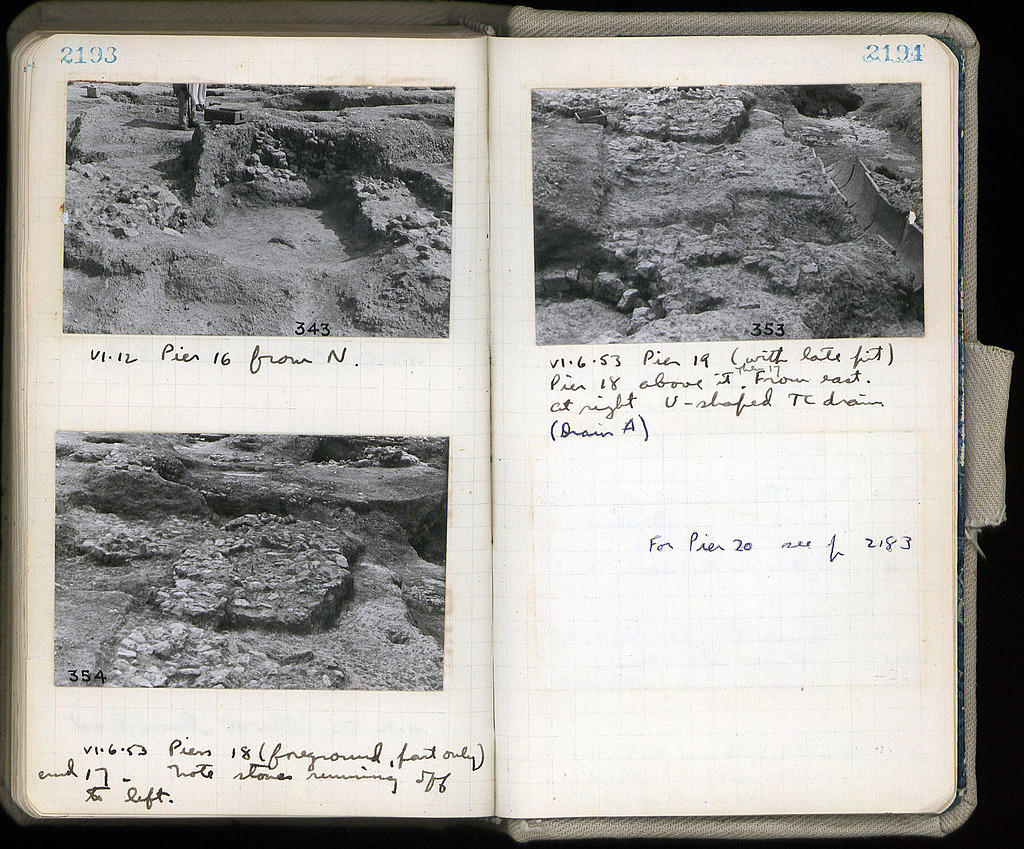 2193
343
VI.12 Pier 16 from N.
354
VI.6.53 Piers 18 (foreground, part only)
and 17 - Note stones running off
to left.
2194
353
VI.6.53 Pier 19 (with late pit)
Pier 18 above it, Pier 17 From east.
at right U-shaped TC drain
(Drain A)
For Pier 20 see p 2183